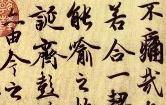 不痛哉
若合一契
能喻之
誕齊彭
由今之